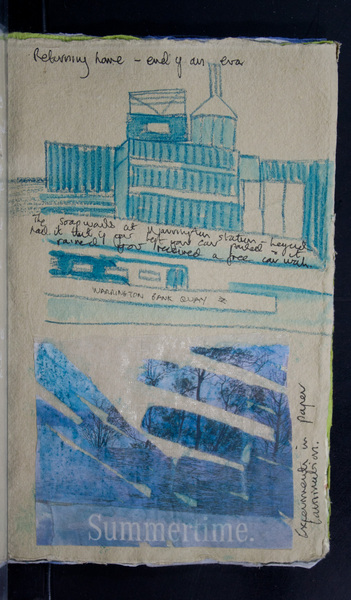 Returning home – end of an era
The soapworks at Warrington station – legend
had it that if your car
raised roof received a free car wash
WARRINGTON BANK QUAY
Experiments in paper
lamination.
Summertime.